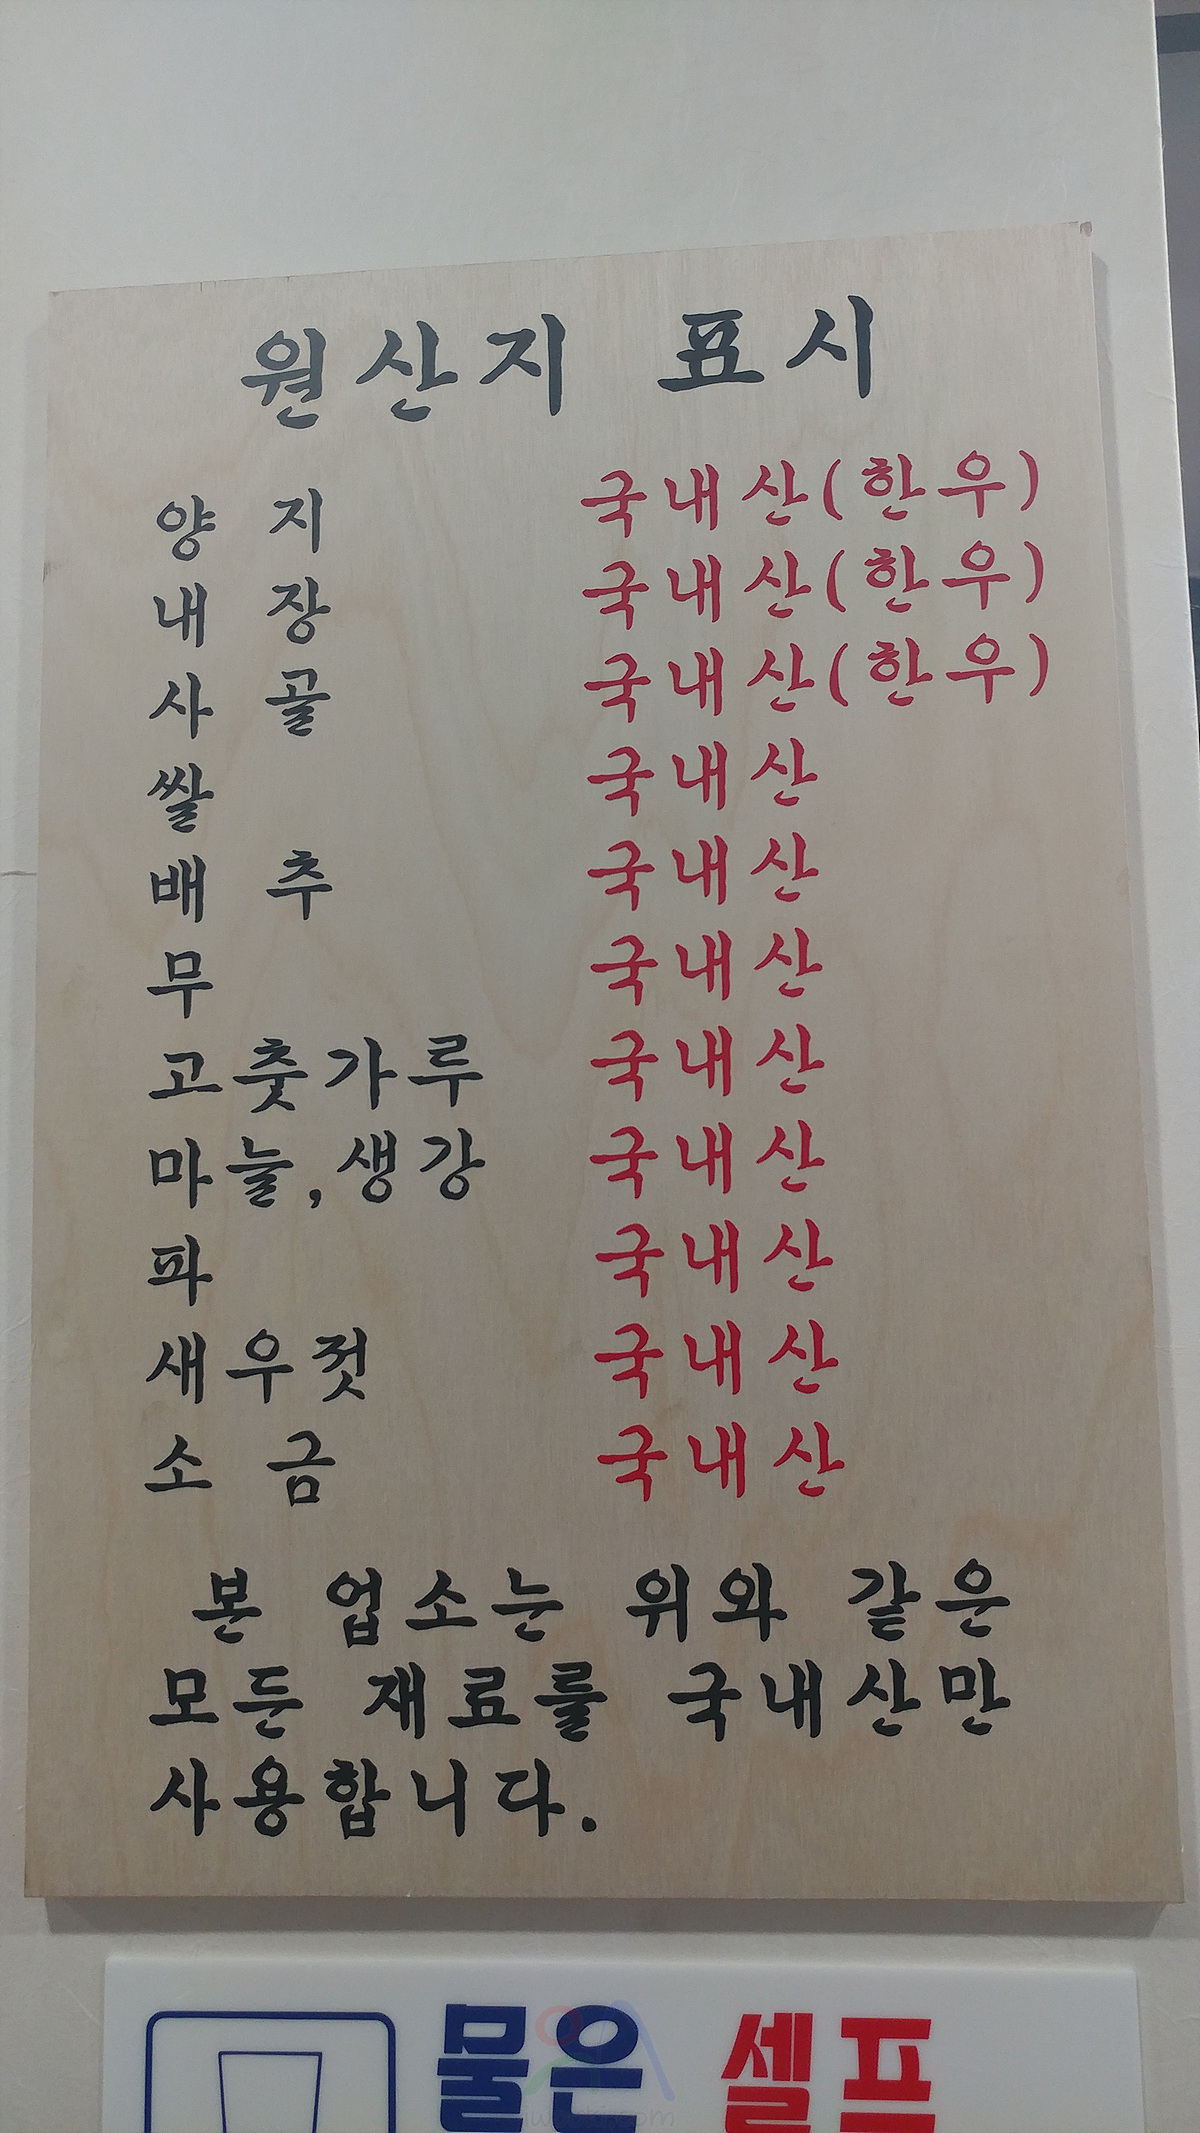 원산지 표시
양 지 국내산(한우)
내 장 국내산(한우)
사 골 국내산(한우)
쌀 국내산
배 추 국내산
무 국내산
고춧가루 국내산
마늘,생강 국내산
파 국내산
새우젓 국내산
소 금 국내산
본 업소는 위와 같은
모든 재료를 국내산만
사용합니다.
물은 셀프